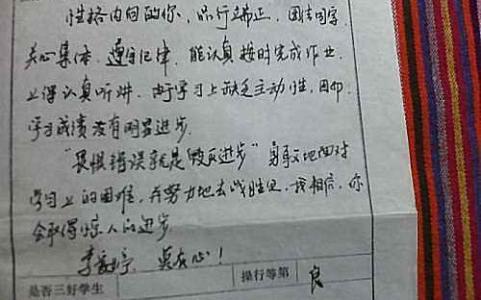 性格内向的你，品行端正，团结同学，
关心集体，遵守纪律，能认真按时完成作业，
上课认真听讲，由于学习上缺乏主动性，因而
学习成绩没有明显进步。
“畏惧错误就是毁灭进步”勇敢地面对
学习上的困难，并努力地去战胜它，我相信，你
会取得惊人的进步
李 贵在心！
是否三好学生 操行等第 良